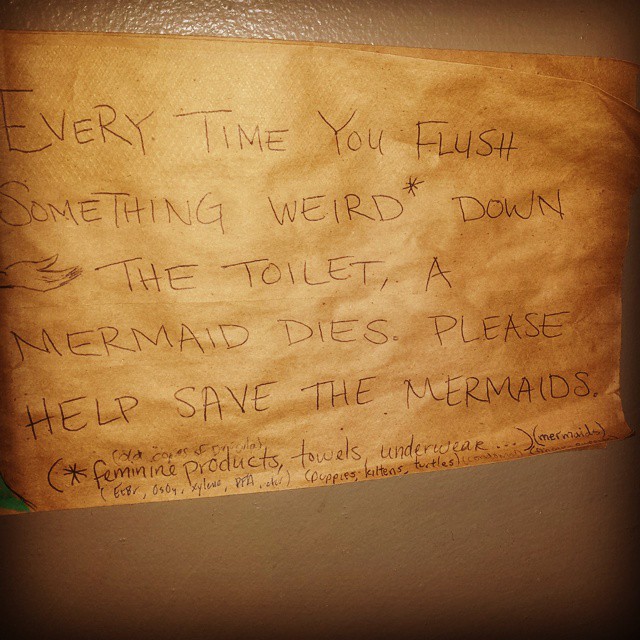 EVERY TIME YOU FLUSH
SOMETHING WEIRD* DOWN
THE TOILET, A
MERMAID DIES. PLEASE
HELP SAVE THE MERMAIDS.
(old copies of
(*feminine products, towels, underwear...) (mermaids)
(EtBr, OsO4, xylene, PFA, etc) (puppies, kittens, turtles)